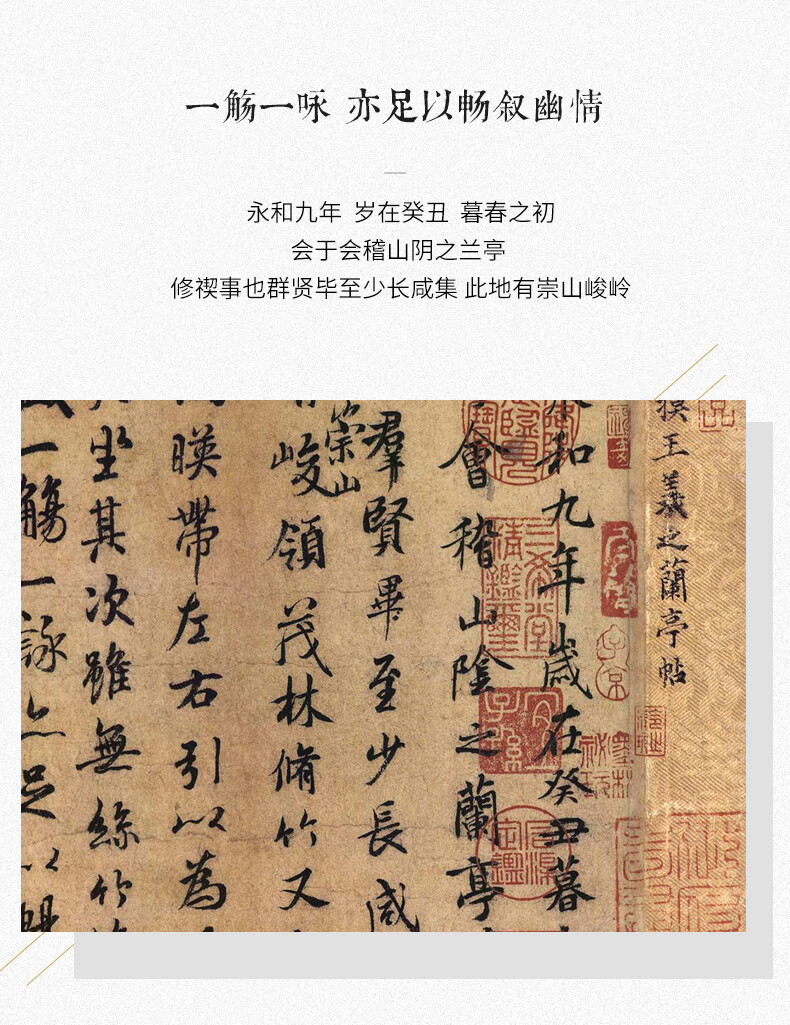 一觞一咏 亦足以畅叙幽情
永和九年 岁在癸丑 暮春之初
会于会稽山阴之兰亭
修禊事也群贤毕至少长咸集 此地有崇山峻岭
王羲之蘭亭帖
和九年歲在癸丑暮
會稽山陰之蘭亭
羣賢畢至少長咸
崇山
峻領茂林脩竹又
暎帶左右引以為
坐其次雖無絲竹
一觴一詠亦足以暢